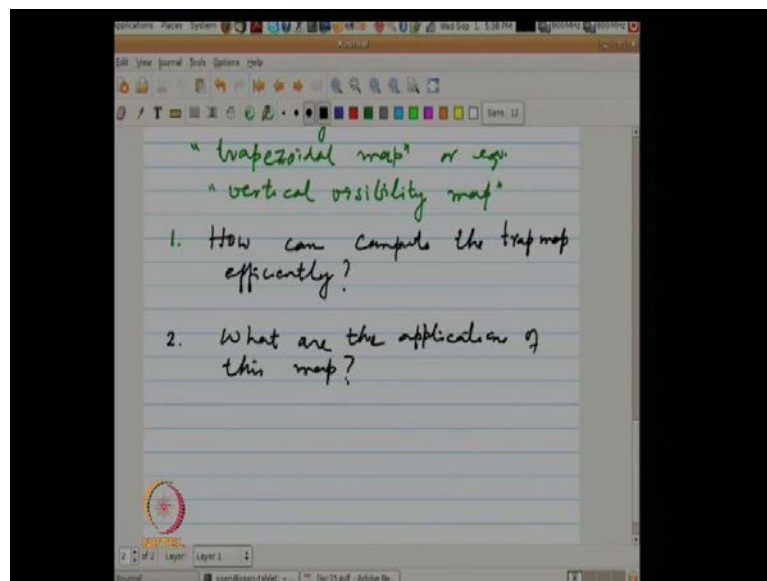 Applications Places System Wed Sep 1, 5:38 PM 800MHz 800MHz
Xournal
Edit View Journal Tools Options Help
Sans 12
"trapezoidal map" or eqv.
"vertical visibility map"
1. How can compute the trap map
efficiently?
2. What are the applications of
this map?
NPTEL
2 of 2 Layer: Layer 1